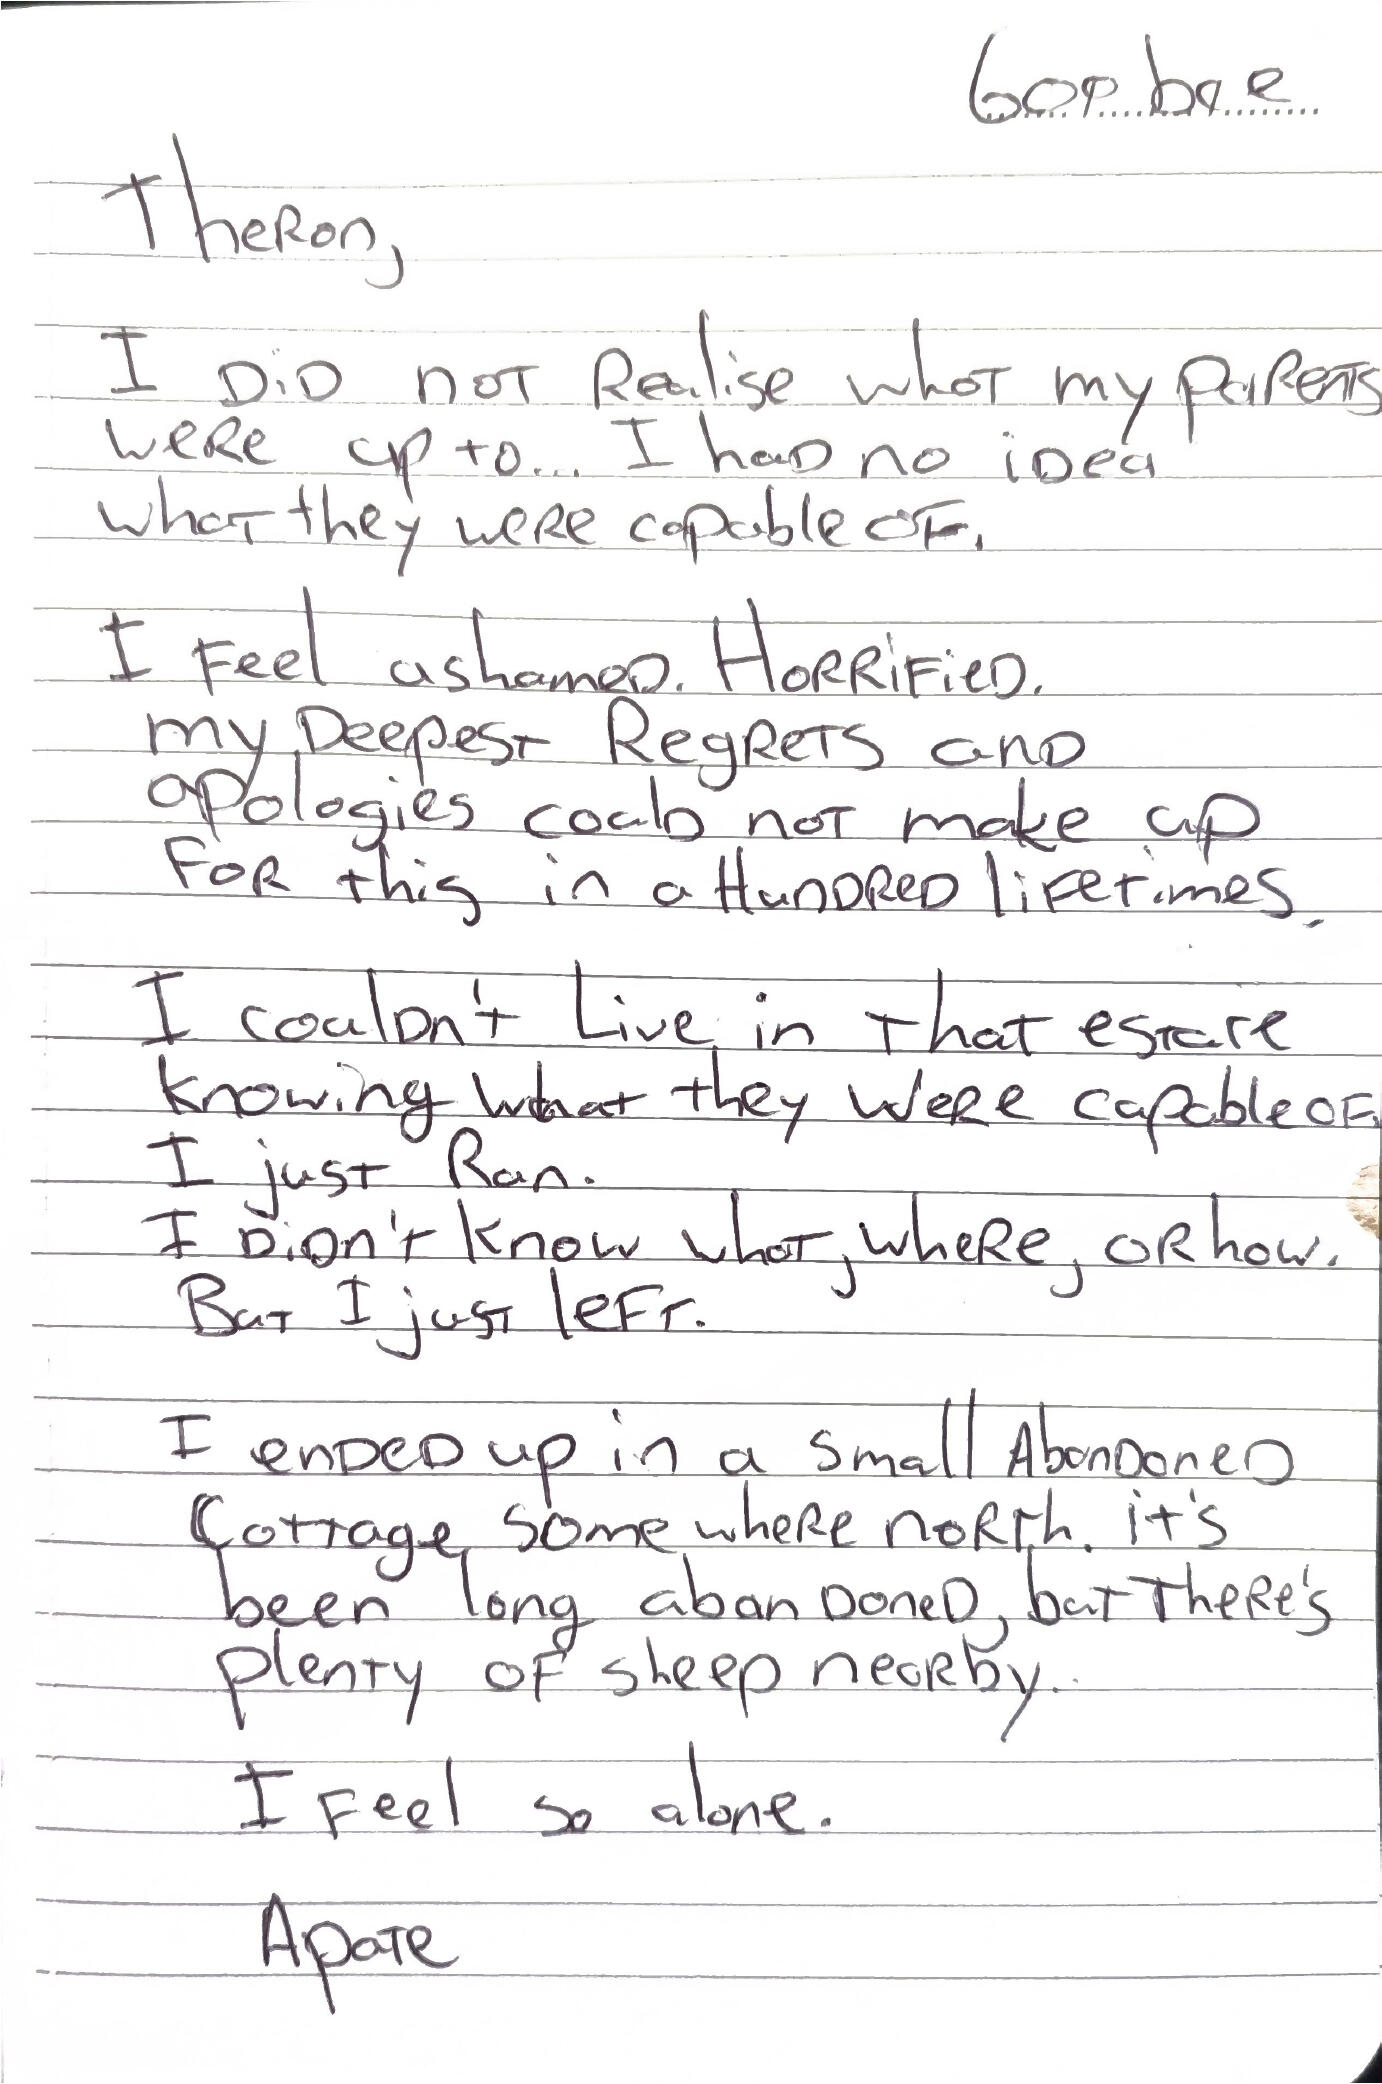 Theron,
I did not realise what my parents
were up to... I had no idea
what they were capable of.
I feel ashamed. Horrified.
my deepest regrets and
apologies could not make up
for this in a hundred lifetimes.
I couldn't live in that estate
knowing what they were capable of.
I just ran.
I didn't know what, where, or how.
But I just left.
I ended up in a small abandoned
cottage somewhere north. it's
been long abandoned, but there's
plenty of sheep nearby.
I feel so alone.
Apate